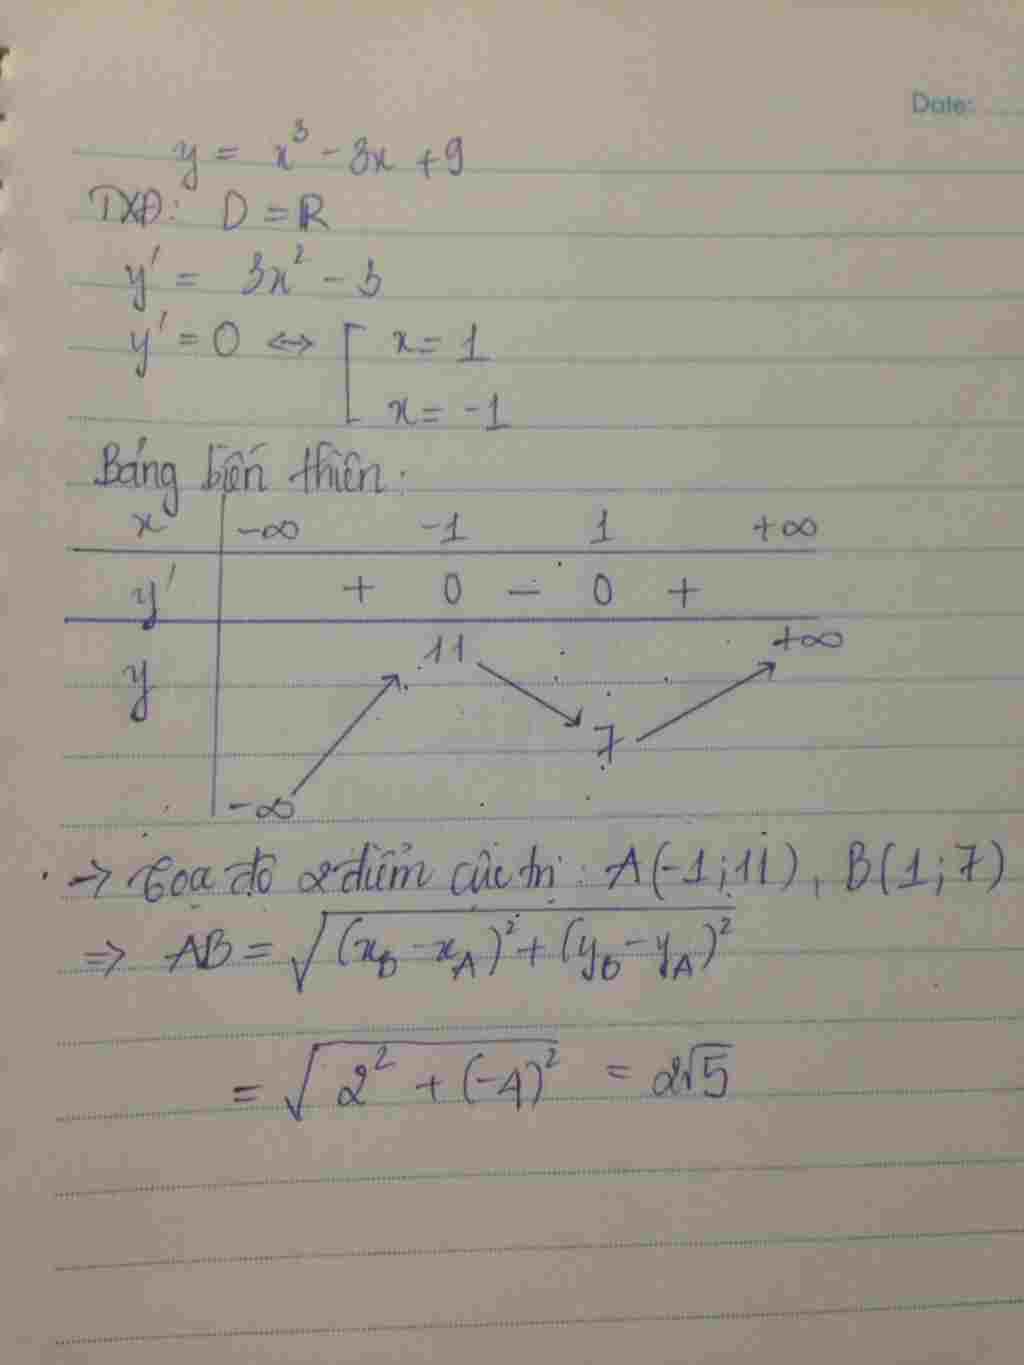 Date:
y = x³ - 3x + 9
TXĐ: D = ℝ
y' = 3x² - 3
y' = 0 ⇔ [ x = 1
x = -1
Bảng biến thiên.
x -∞ -1 1 +∞
y' + 0 - 0 +
y 11 +∞
7
-∞
→ Toạ độ 2 điểm cực trị: A(-1;11), B(1;7)
⇒ AB = √((x_B - x_A)² + (y_B - y_A)²)
= √(2² + (-4)²) = 2√5